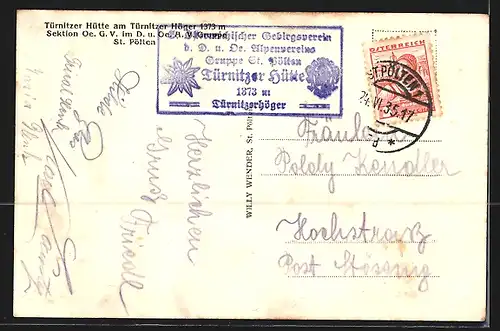 Türnitzer Hütte am Türnitzer Höger 1373 m
Sektion Oe. G. V. im D. u. Oe. A. V. Gruppe
St. Pölten
Gebirgsverein
d. D. u. Oe. Alpenvereins
Gruppe St. Pölten
Türnitzer Hütte
1373 m
Türnitzerhöger
ÖSTERREICH
ST. PÖLTEN
24.VI.35.17
Herzlichen
Gruß Friedl
WILLY WENDER, St. Pölten
Fräulein
Poldy Kandler
Hochstraß
Post Stössing